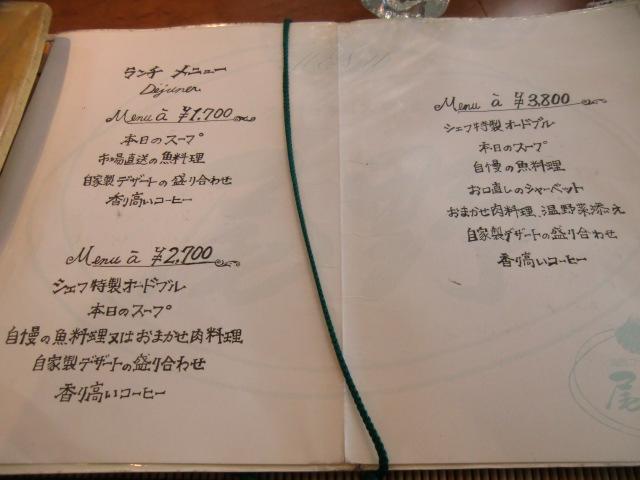 ランチ メニュー
Déjuner
Menu à ¥1,700
本日のスープ
市場直送の魚料理
自家製デザートの盛り合わせ
香り高いコーヒー
Menu à ¥2,700
シェフ特製オードブル
本日のスープ
自慢の魚料理又はおまかせ肉料理
自家製デザートの盛り合わせ
香り高いコーヒー
Menu à ¥3,800
シェフ特製オードブル
本日のスープ
自慢の魚料理
お口直しのシャーベット
おまかせ肉料理、温野菜添え
自家製デザートの盛り合わせ
香り高いコーヒー
尾